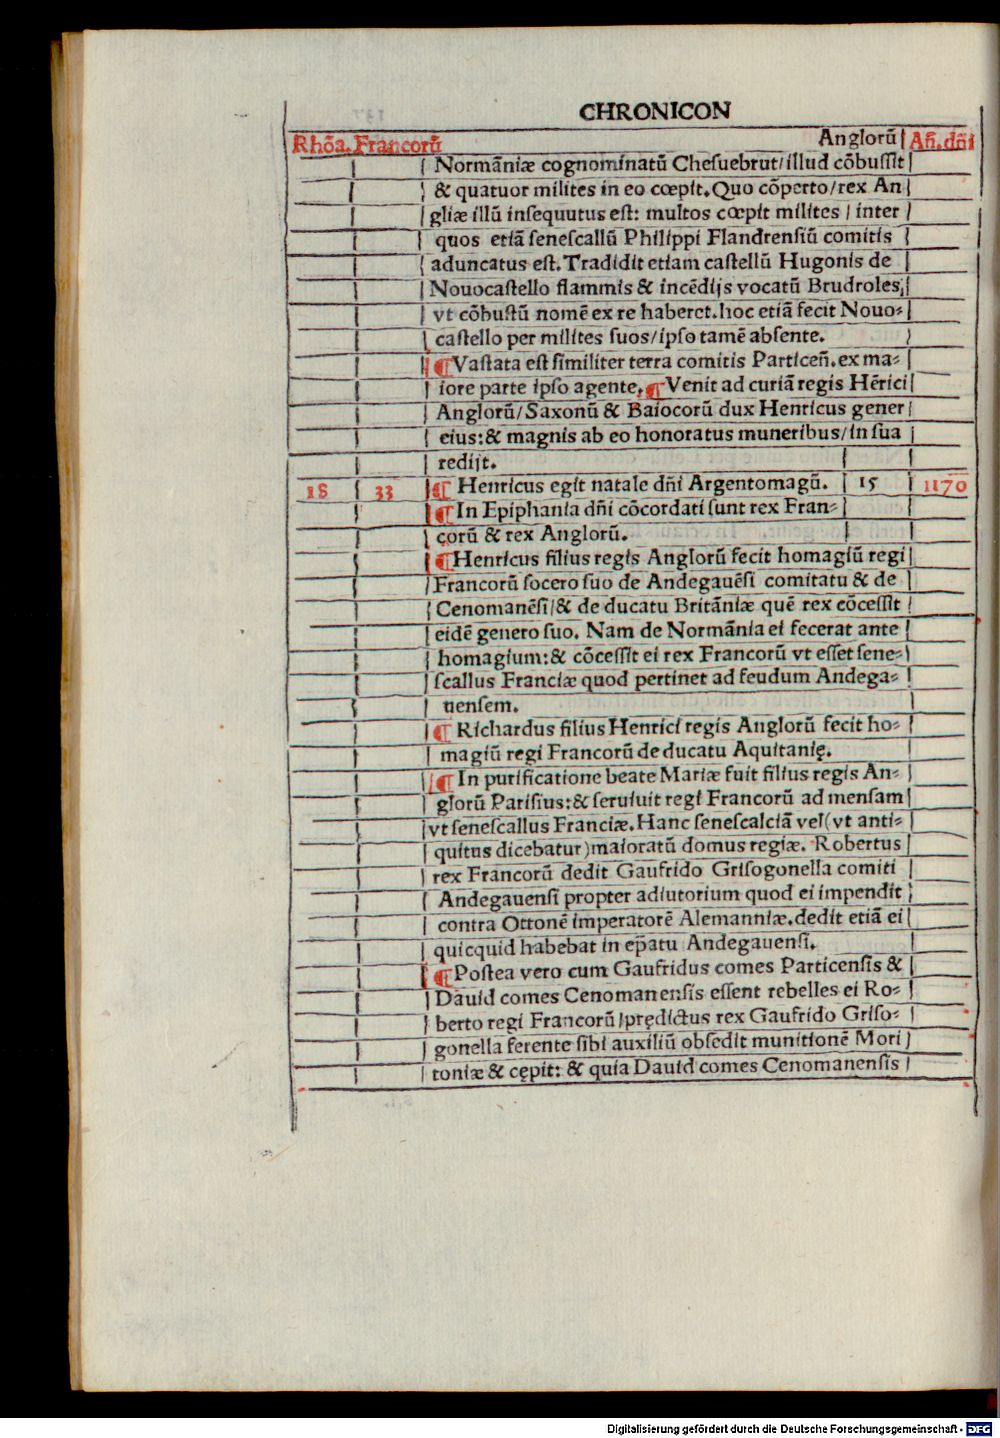 CHRONICON
Rhōa. Francorū Anglorū Añ. dñi
Normāniæ cognominatū Cheſuebrut/illud cōbuſſit
& quatuor milites in eo cœpit. Quo cōperto/rex An
gliæ illū inſequutus eſt: multos cœpit milites / inter
quos etiā ſeneſcallū Philippi Flandrenſiū comitis
aduncatus eſt. Tradidit etiam caſtellū Hugonis de
Nouocaſtello flammis & incēdijs vocatū Brudroles,
vt cōbuſtū nomē ex re haberet. hoc etiā fecit Nouo⸗
caſtello per milites ſuos/ipſo tamē abſente.
¶ Vaſtata eſt ſimiliter terra comitis Particeñ. ex ma⸗
iore parte ipſo agente. ¶ Venit ad curiā regis Hērici
Anglorū/Saxonū & Baiocorū dux Henricus gener
eius: & magnis ab eo honoratus muneribus/in ſua
redijt.
18 33 ¶ Henricus egit natale dñi Argentomagū. 15 1170
¶ In Epiphania dñi cōcordati ſunt rex Fran⸗
corū & rex Anglorū.
¶ Henricus filius regis Anglorū fecit homagiū regi
Francorū ſocero ſuo de Andegauēſi comitatu & de
Cenomanēſi/& de ducatu Britāniæ quē rex cōceſſit
eidē genero ſuo. Nam de Normānia ei fecerat ante
homagium: & cōceſſit ei rex Francorū vt eſſet ſene⸗
ſcallus Franciæ quod pertinet ad feudum Andega⸗
uenſem.
¶ Richardus filius Henrici regis Anglorū fecit ho⸗
magiū regi Francorū de ducatu Aquitanię.
¶ In purificatione beate Mariæ fuit filius regis An⸗
glorū Pariſius: & ſeruiuit regi Francorū ad menſam
vt ſeneſcallus Franciæ. Hanc ſeneſcalciā vel (vt anti⸗
quitus dicebatur) maioratū domus regiæ. Robertus
rex Francorū dedit Gaufrido Griſogonella comiti
Andegauenſi propter adiutorium quod ei impendit
contra Ottonē imperatorē Alemanniæ. dedit etiā ei
quicquid habebat in ep̄atu Andegauenſi.
¶ Poſtea vero cum Gaufridus comes Particenſis &
Dauid comes Cenomanenſis eſſent rebelles ei Ro⸗
berto regi Francorū/prędictus rex Gaufrido Griſo⸗
gonella ferente ſibi auxiliū obſedit munitionē Mori
toniæ & cępit: & quia Dauid comes Cenomanenſis
Digitalisierung gefördert durch die Deutsche Forschungsgemeinschaft - DFG